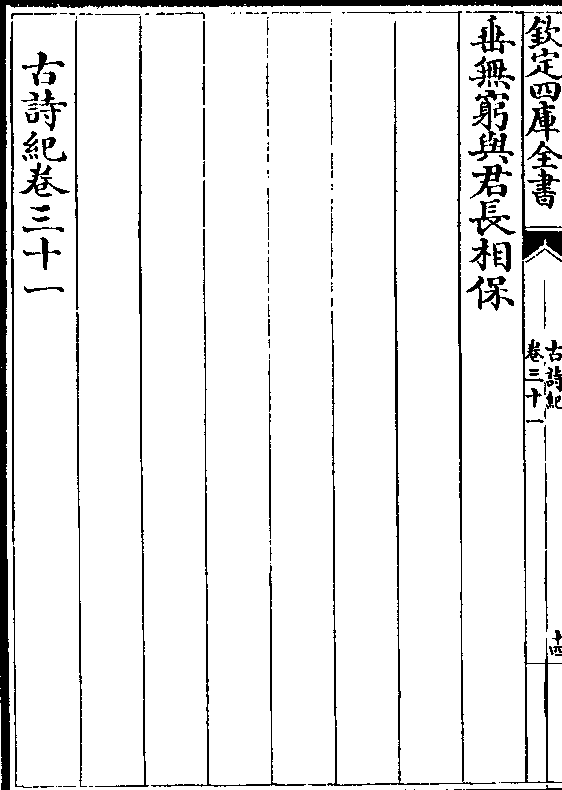 欽定四庫全書
古詩紀
卷三十一
十四
垂無窮與君長相保
古詩紀卷三十一